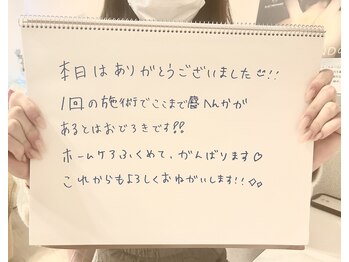 本日はありがとうございました!!
1回の施術でここまで唇へんかが
あるとはおどろきです??
ホームケアふくめて、がんばります♡
これからもよろしくおねがいします!!